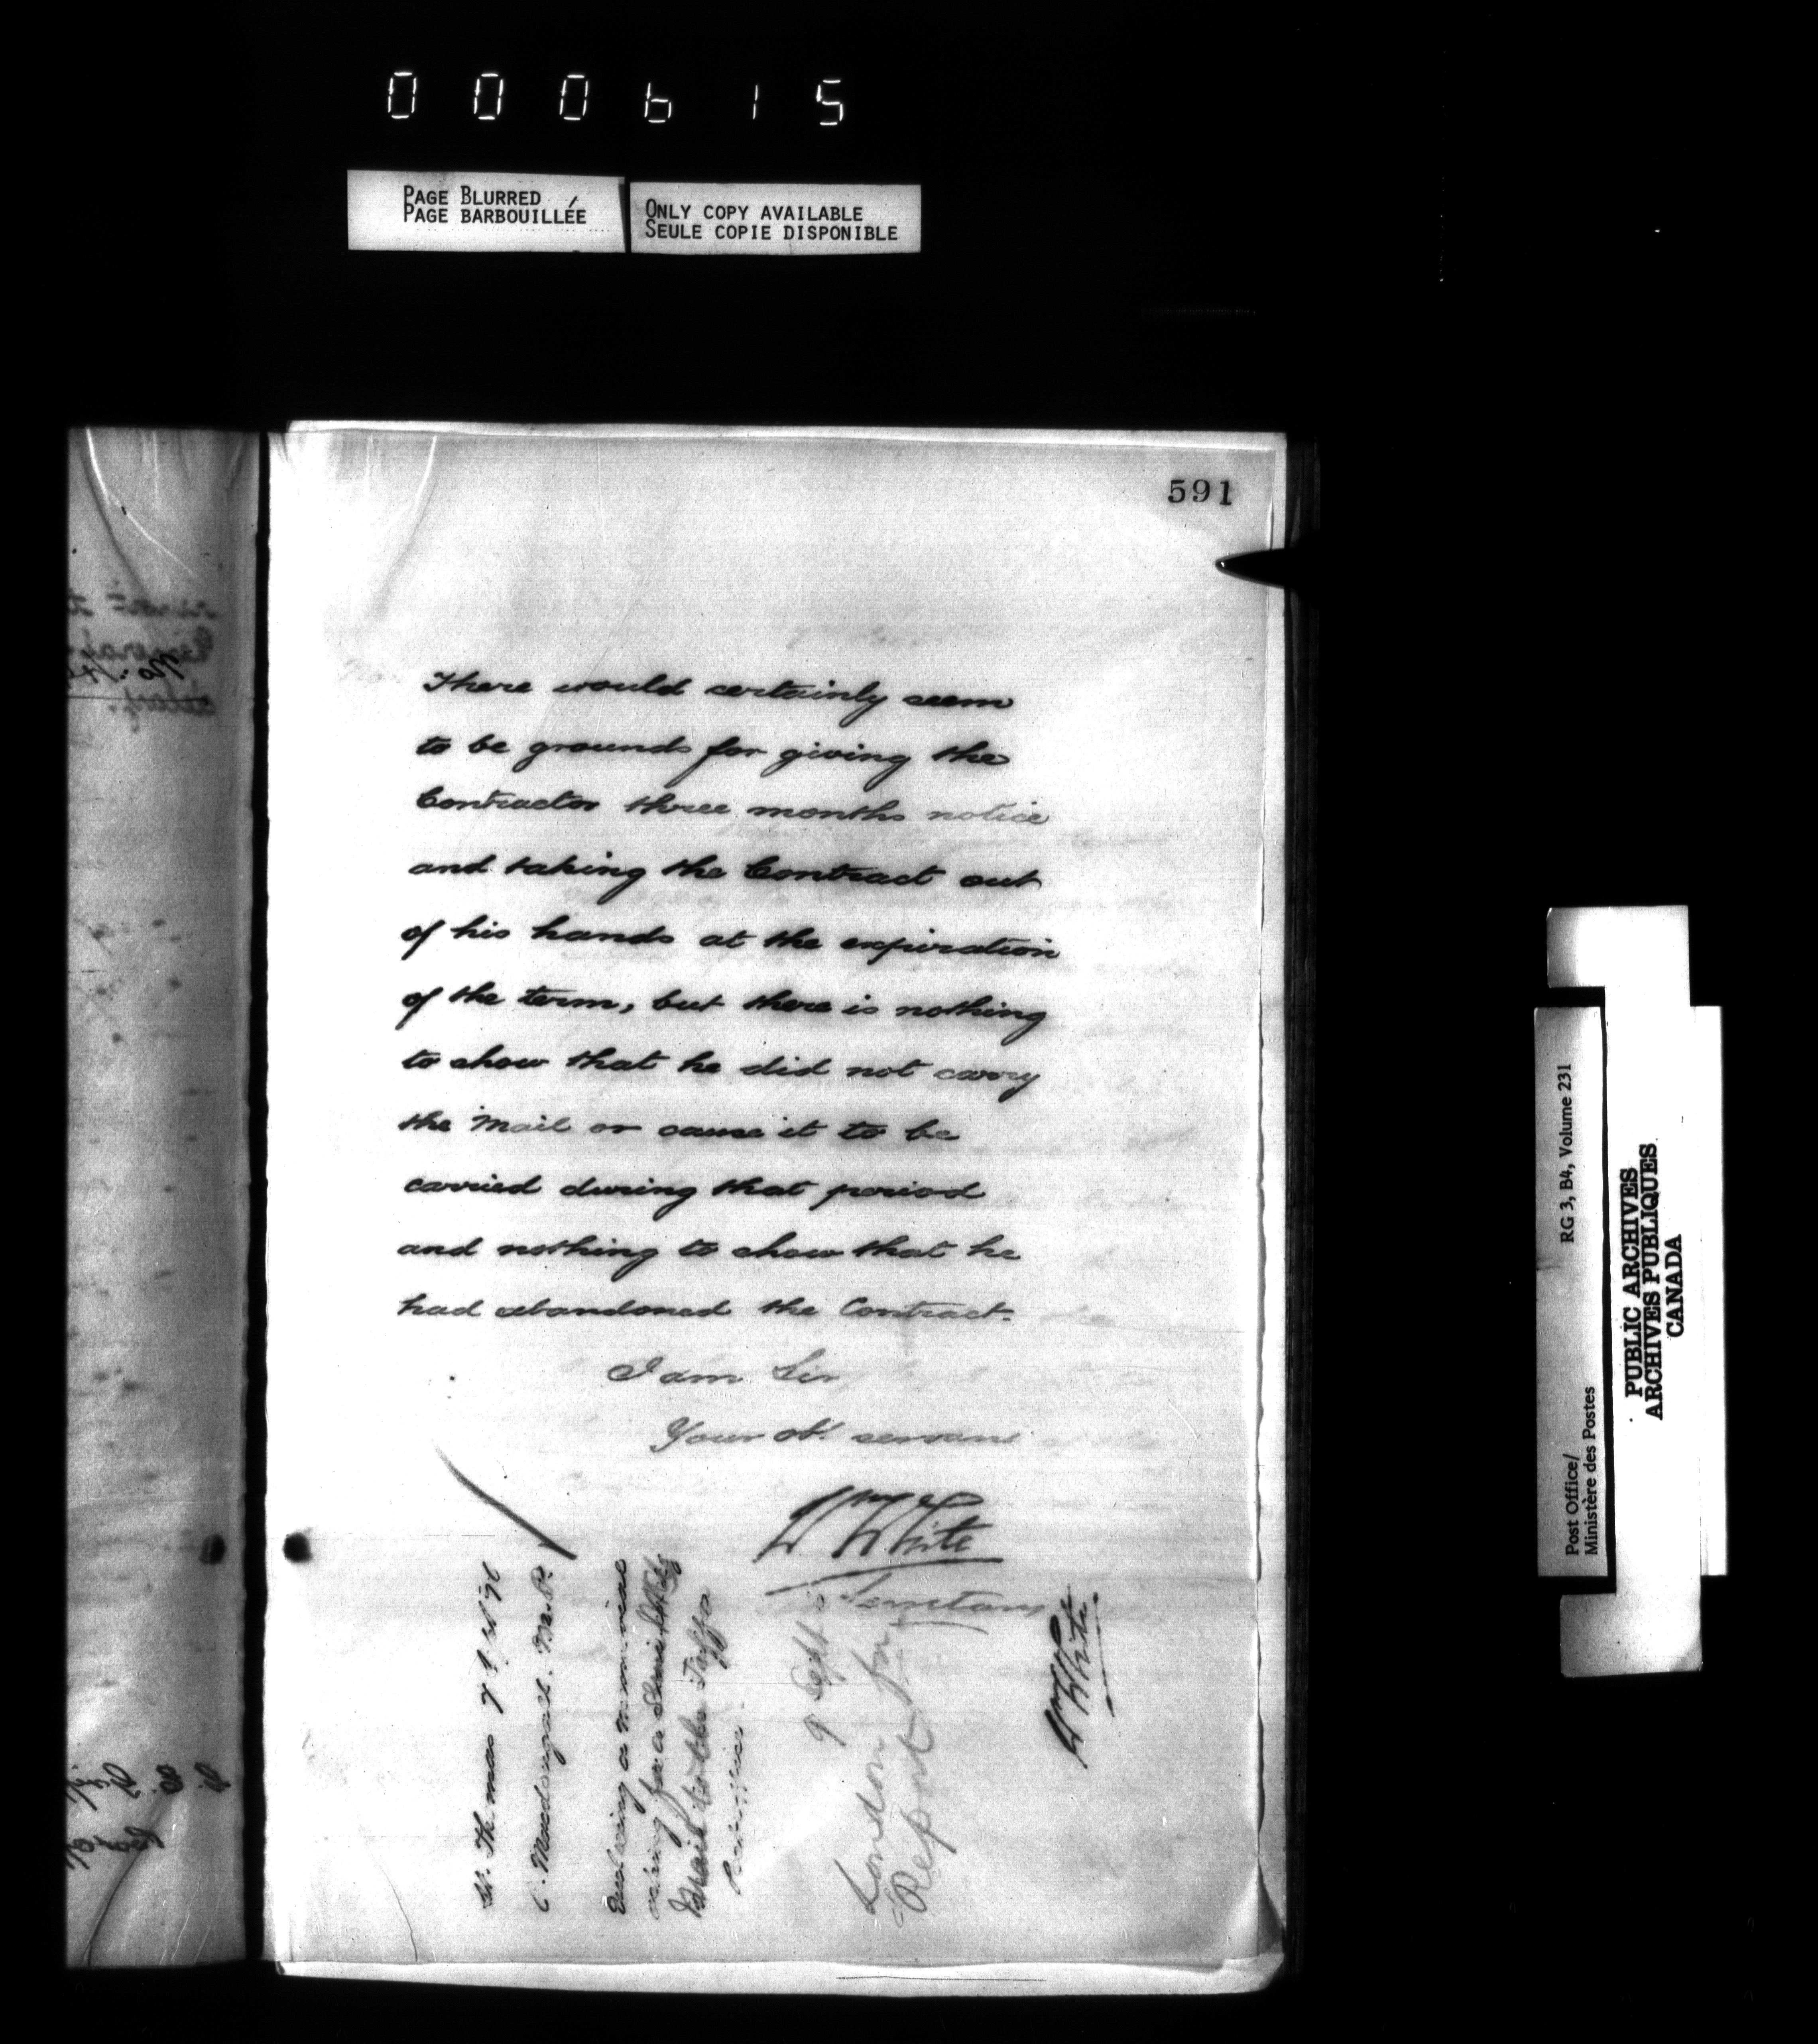 000615
PAGE BLURRED
PAGE BARBOUILLÉE
ONLY COPY AVAILABLE
SEULE COPIE DISPONIBLE
591
There would certainly seem
to be grounds for giving the
Contractor three months notice
and taking the Contract out
of his hands at the expiration
of the term, but there is nothing
to show that he did not carry
the Mail or cause it to be
carried during that period
and nothing to show that he
had abandoned the Contract.
I am Sir
Your obt. servant
Wm White
Secretary
St. Thomas 7
C. Macdougall. M.P.
Enclosing a memorial
asking for a Semi Wkly
Mail to the Jaffa
Post office.
9 Sept
London for
Report
Wm White
RG 3, B4, Volume 231
Post Office/
Ministère des Postes
PUBLIC ARCHIVES
ARCHIVES PUBLIQUES
CANADA